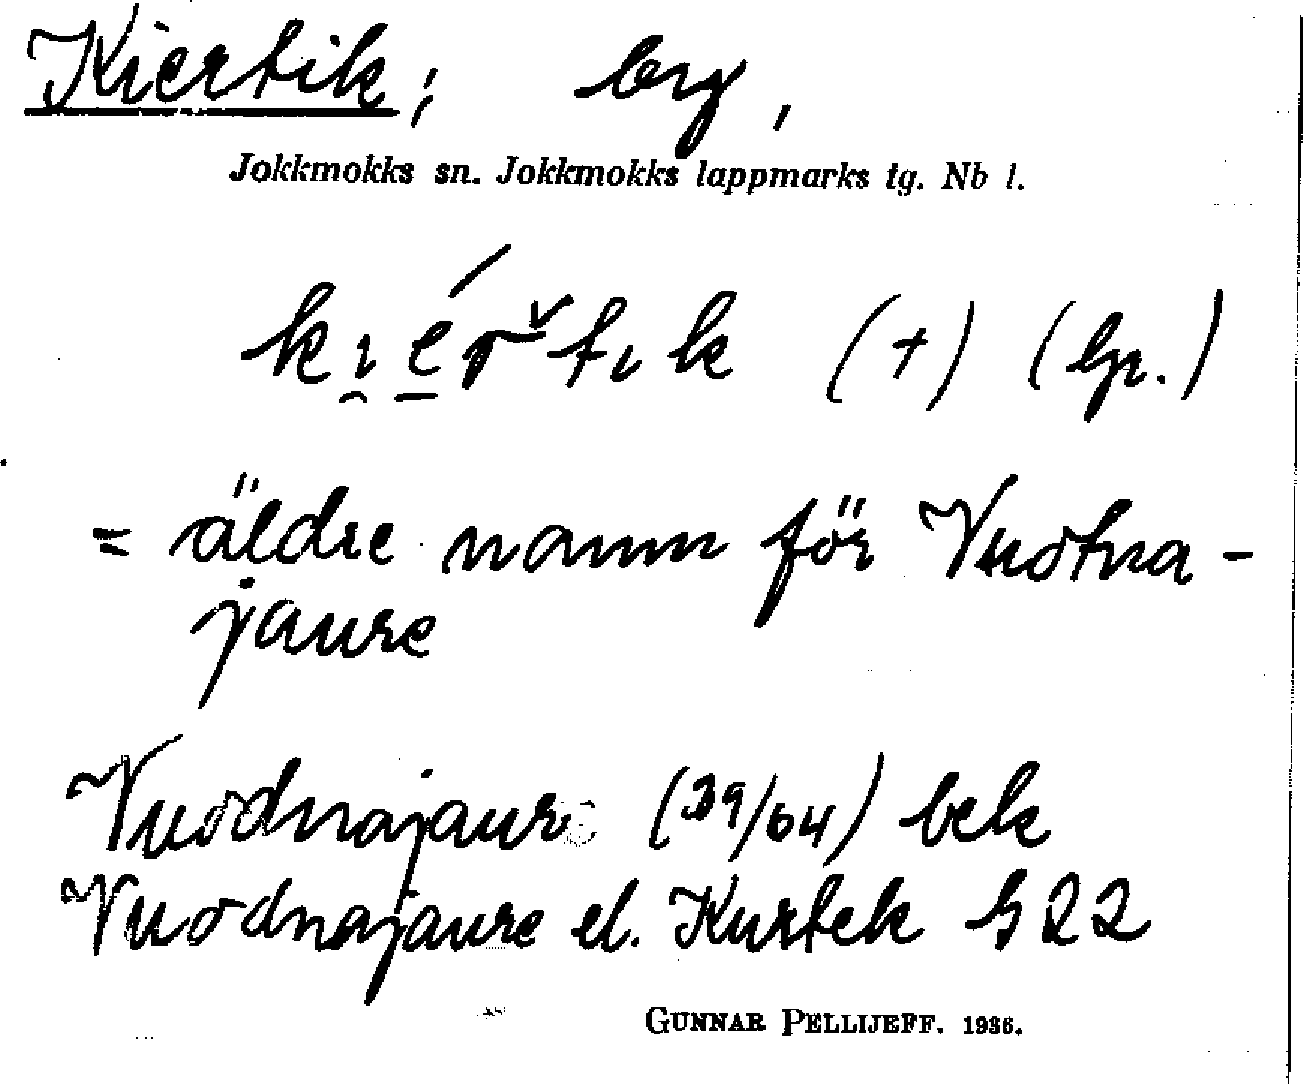 Kiertik; by,
Jokkmokks sn. Jokkmokks lappmarks tg. Nb l.
(+) (lp.)
= äldre namn för Vuotna-
jaure
Vuodnajaure (39/64) bek
Vuodnajaure el. Kurtek S 22
GUNNAR PELLIJEFF. 1936.